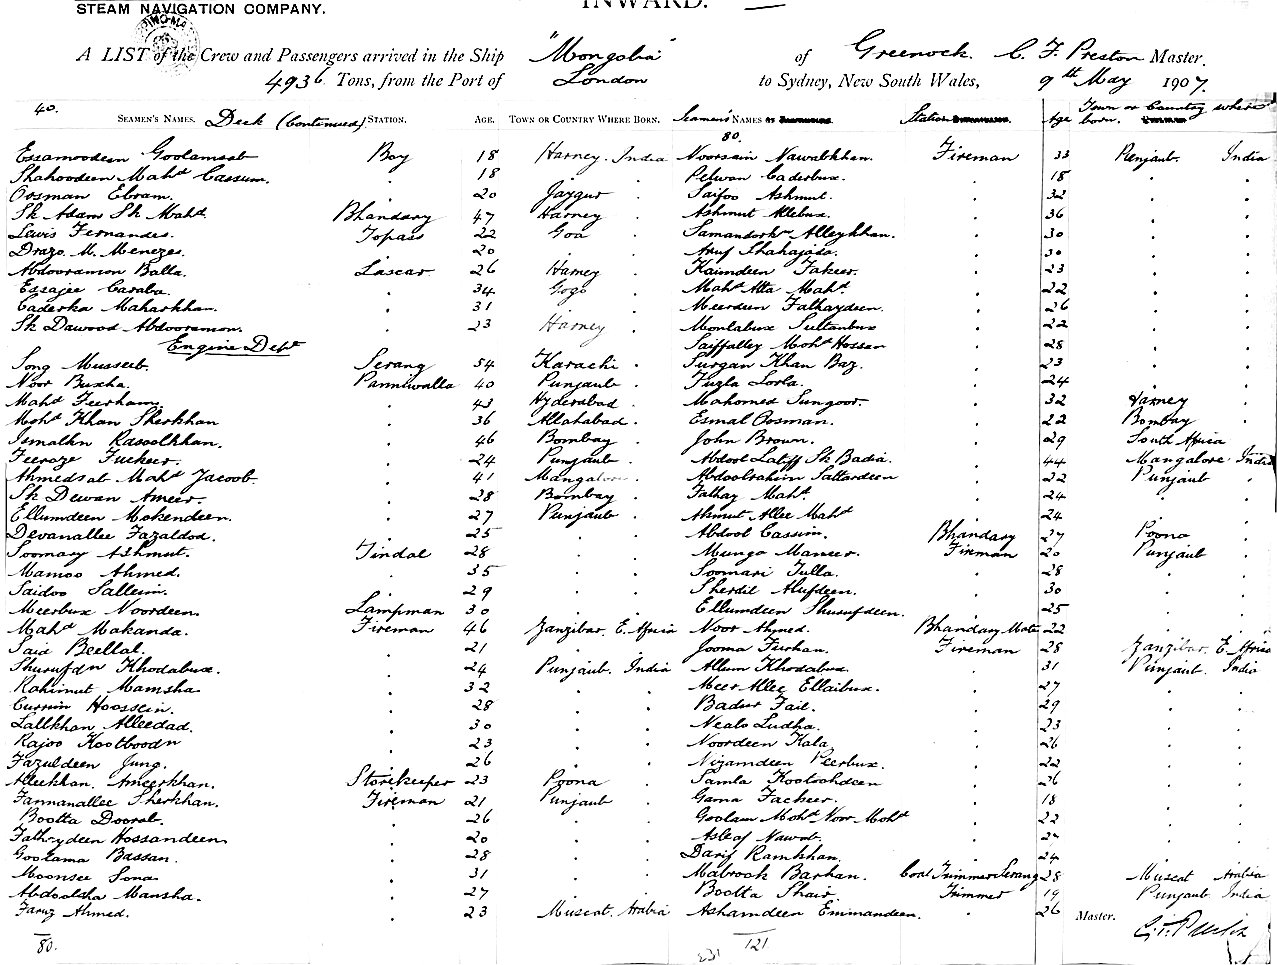 STEAM NAVIGATION COMPANY.
INWARD.
A LIST of the Crew and Passengers arrived in the Ship "Mongolia" of Greenock C. F. Preston Master.
4936 Tons, from the Port of London to Sydney, New South Wales, 9th May 1907.
40.
SEAMEN'S NAMES. Deck (continued) STATION. AGE. TOWN OR COUNTRY WHERE BORN. Seamen's NAMES Station Age Town or Country where born.
80.
Essamodeen Goolamsab Boy 18 Harney. India Noorsain Nawabkhan. Fireman 33 Penjaub. India
Shahoodeen Mahd Cassum. . 18 . . Pelwan Caderbux. . 18 . .
Oosman Ebram. . 20 Jaygur . Saifoo Ashmut. . 32 . .
Sk Adam Sk Mahd. Bhandary 47 Harney . Ashmut Allebux. . 36 . .
Lewis Fernandes. Topass 22 Goa . Samandorkn Alleykhan. . 30 . .
Drazo. M. Menezes. . 20 . . Aruf Shahajada. . 30 . .
Abdooramon Balla. Lascar 26 Harney . Kaimdeen Fakeer. . 23 . .
Essajee Caraba. . 34 Gogo . Mahd Atta Mahd. . 22 . .
Caderka Maharkhan. . 31 . . Meerdeen Fathaydeen. . 26 . .
Sk Dawood Abdooramon. . 23 Harney . Monlabux Sultanbux . 22 . .
Engine Dept Saiffalley Mohd Hossen . 28 . .
Song Musseeb. Serang 54 Karachi . Surgan Khan Baz. . 23 . .
Noor Buxha. Panniwalla 40 Punjaub . Fugla Lorla. . 24 . .
Mahd Feerham. . 43 Hyderabad . Mahomed Sungoor. . 32 Harney .
Mohd Khan Sherkhan . 36 Allahabad . Esmal Oosman. . 22 Bombay .
Ismalkn Rasoolkhan. . 46 Bombay . John Brown. . 29 South Africa
Feeroze Fuckeer. . 24 Punjaub . Abdool Latiff Sk Badia. . 44 Mangalore India
Ahmedsab Mahd Jacoob. . 41 Mangalore . Abdoolrahim Sattardeen . 22 Punjaub .
Sk Dewan Ameer. . 28 Bombay . Fathay Mahd. . 24 . .
Ellumdeen Mokendeen. . 27 Punjaub . Ahmut Allee Mahd . 24 . .
Devanallee Fazaldod. . 25 . . Abdool Cassim. Bhandary 27 Poona .
Soomary Ashmut. Tindal 28 . . Mungo Maneer. Fireman 20 Punjaub .
Mamoo Ahmed. . 35 . . Soomari Tulla. . 28 . .
Saidoo Salleim. . 29 . . Sherdil Alufdeen. . 30 . .
Meerbux Noordeen. Lampman 30 . . Ellumdeen Shurufdeen. . 25 . .
Mahd Makanda. Fireman 46 Zanzibar. E. Africa Noor Ahmed. Bhandary Mate 22 . .
Said Beellal. . 21 . . Jooma Furhan. Fireman 28 Zanzibar. E. Africa
Shurufdn Khodabux. . 24 Punjaub. India Allum Khodabux. . 31 Punjaub. India
Rahimut Mamsha . 32 . . Meer Allee Ellaibux. . 27 . .
Currim Hoossein. . 28 . . Badur Fail. . 29 . .
Lallkhan Alleedad. . 30 . . Nealo Ludha. . 23 . .
Rajoo Kootboodn . 23 . . Noordeen Kala. . 26 . .
Fazuldeen Jung. . 26 . . Nizamdeen Peerbux. . 22 . .
Alleekhan. Ameerkhan. Storekeeper 23 Poona . Samla Kootoobdeen . 26 . .
Fannanallee Sherkhan. Fireman 21 Punjaub . Gama Facheer. . 18 . .
Bootta Doorab. . 26 . . Goolam Mohd Noor Mohd . 22 . .
Fathrydeen Hossandeen . 20 . . Asleaf Nawab. . 27 . .
Goolama Bassan. . 28 . . Darif Ramkhan. . 24 . .
Moonsee Sona. . 31 . . Mabrook Barhan. Coal Trimmer Serang 28 Muscat Arabia
Abdoolsha Mansha. . 27 . . Bootta Shair. Trimmer 19 Punjaub India
Faruz Ahmed. . 23 Muscat. Arabia Ashamdeen Emmandeen. . 26
Master.
C. F. Preston
80.
121